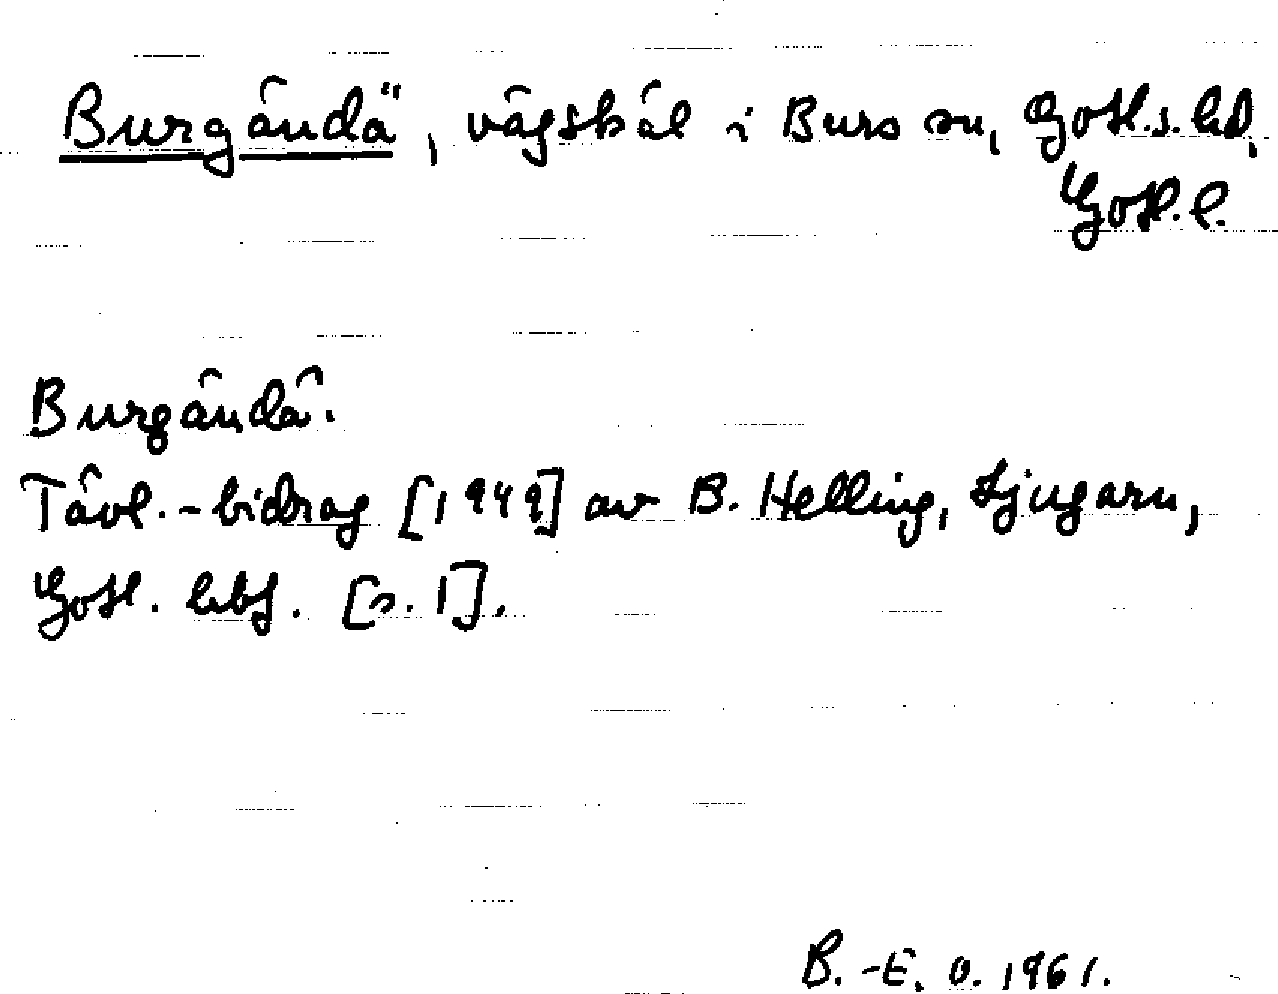 Burgändä", vägskäl i Burs sn, Gotl.s. hd,
Gotl. l.
Burgändä.
Tävl.-bidrag [1949] av B. Helling, Ljugarn,
Gotl. hbf. [s. 1].
B.-E. O. 1961.